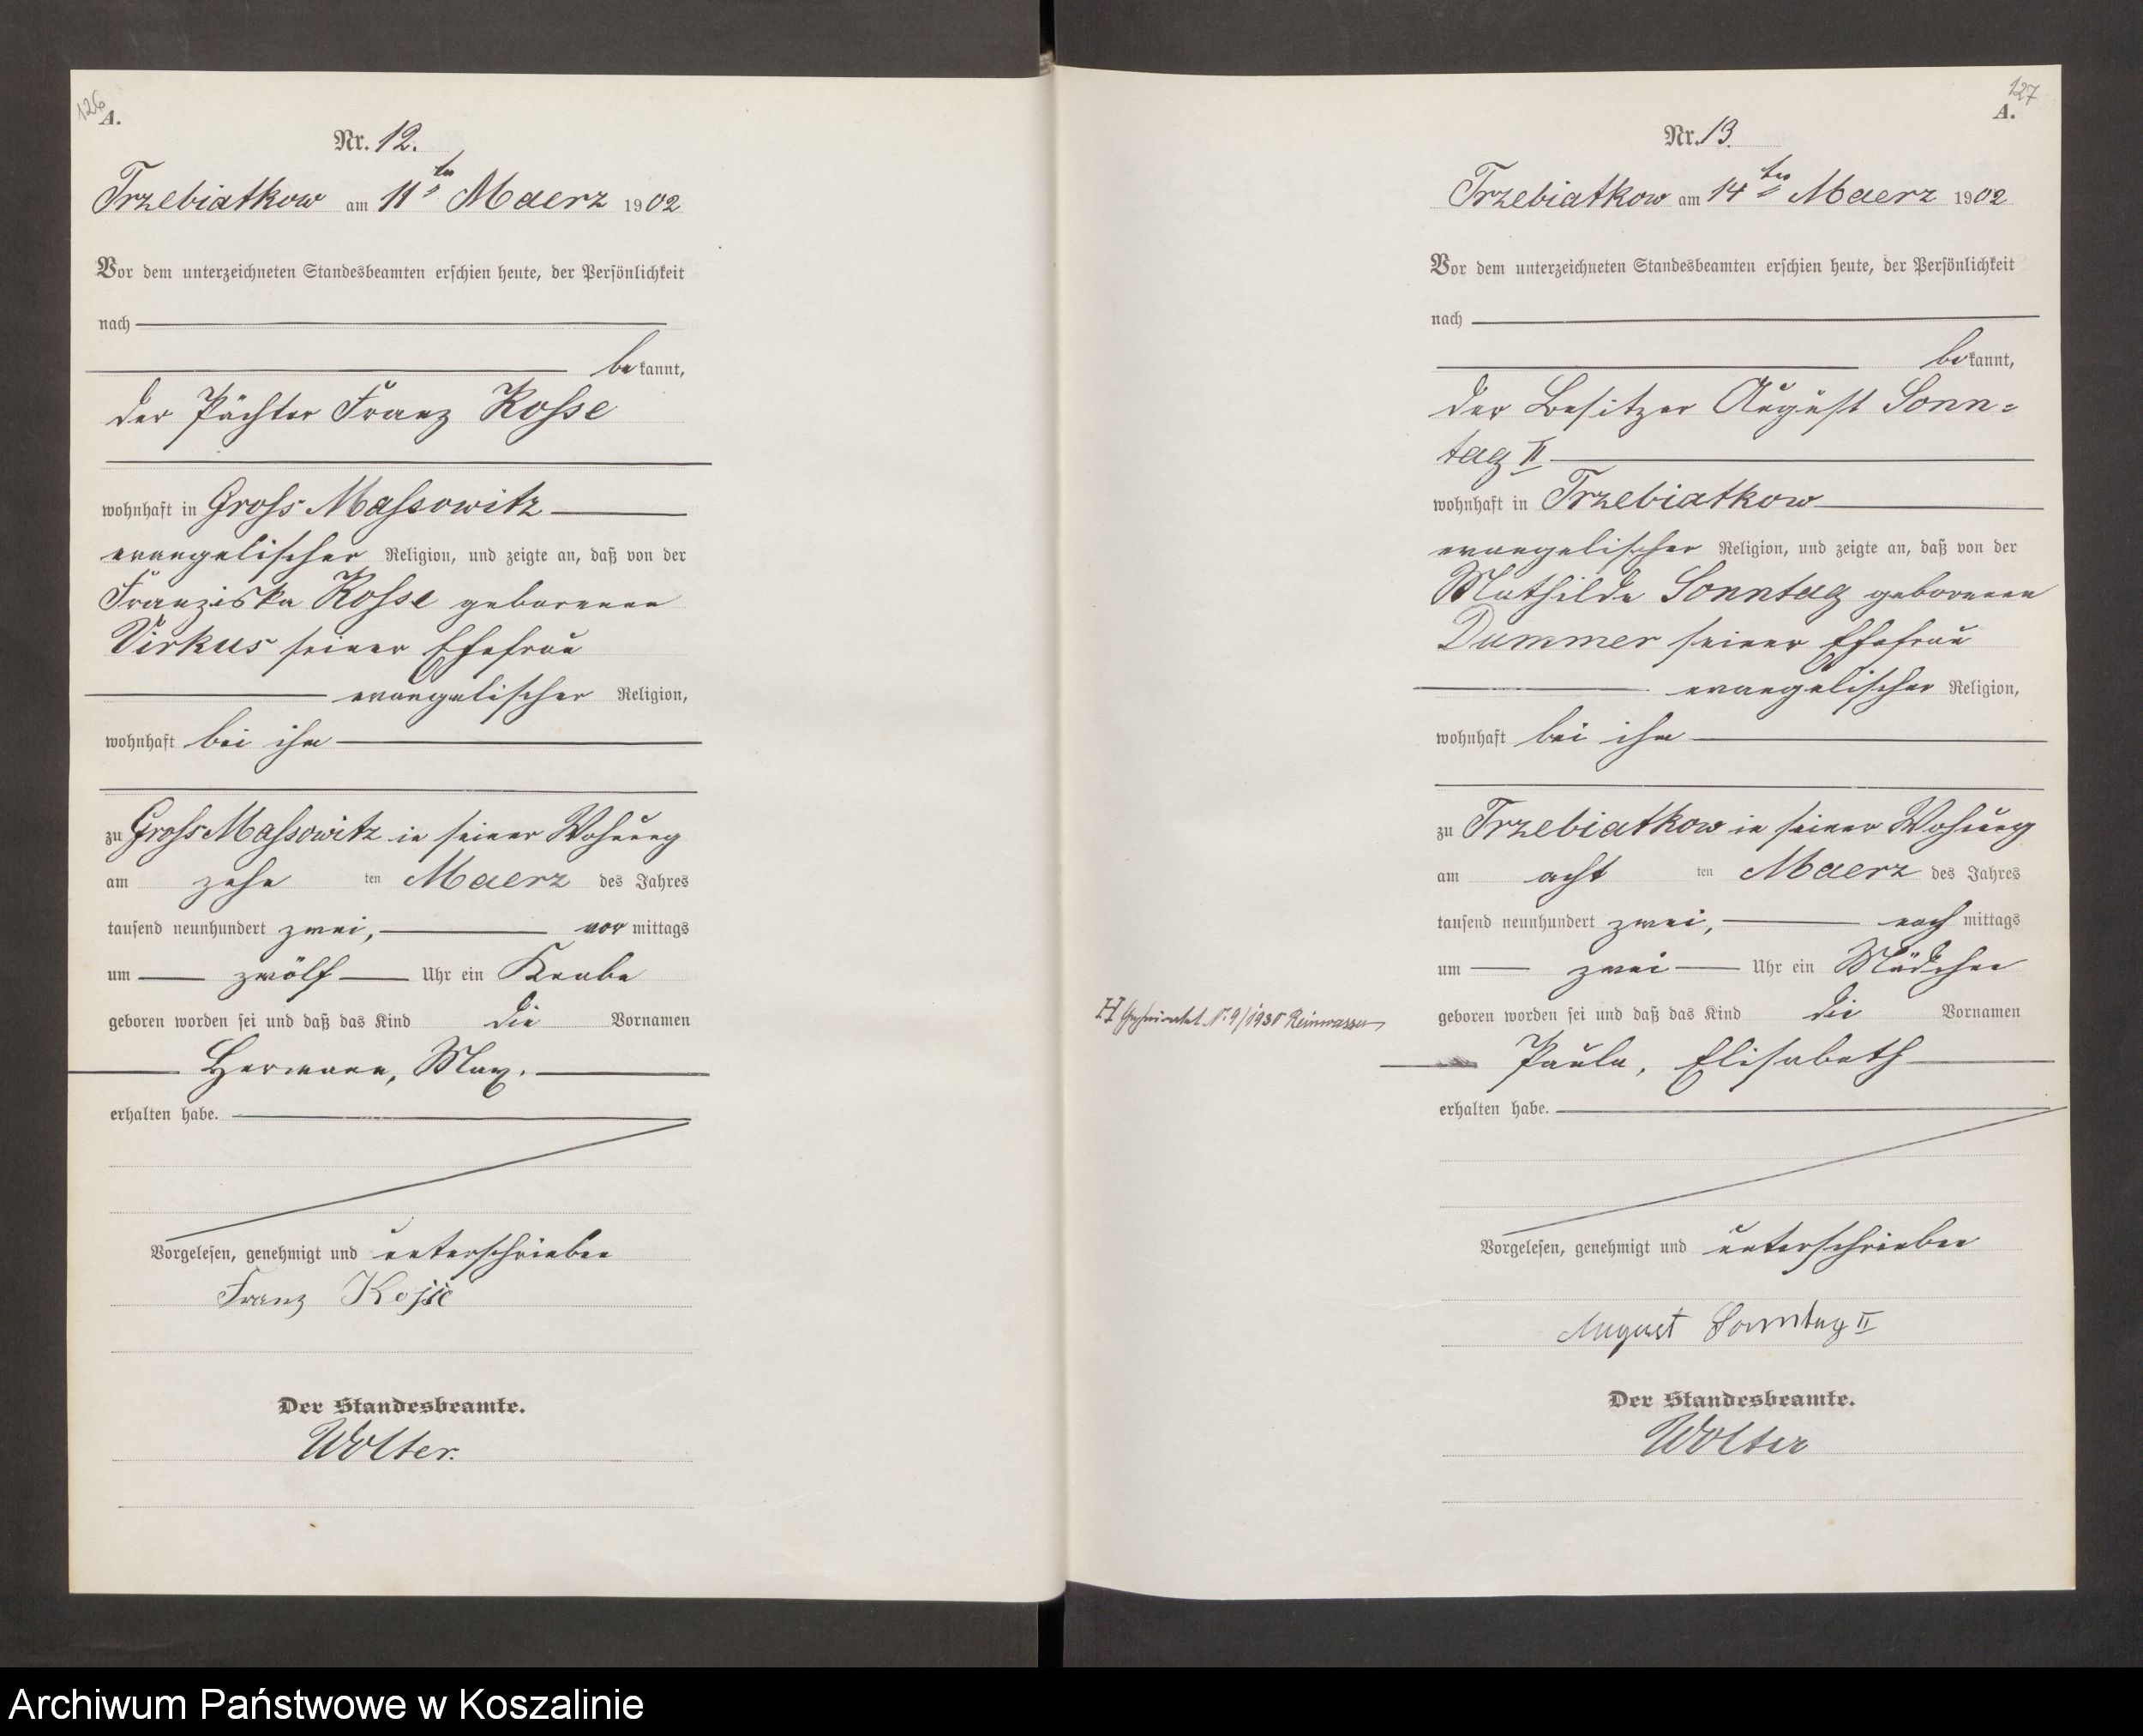 126
A.
Nr. 12.
Trzebiatkow am 11ten Maerz 1902
Vor dem unterzeichneten Standesbeamten erschien heute, der Persönlichkeit
nach
bekannt,
der Pächter Franz Kosse
wohnhaft in Gross Massowitz
evangelischer Religion, und zeigte an, daß von der
Franziska Kosse geborenen
Virkus seiner Ehefrau
evangelischer Religion,
wohnhaft bei ihm
zu Gross Massowitz in seiner Wohnung
am zehn ten Maerz des Jahres
tausend neunhundert zwei, vor mittags
um zwölf Uhr ein Knabe
geboren worden sei und daß das Kind die Vornamen
Hermann, Max.
erhalten habe.
Vorgelesen, genehmigt und unterschrieben
Franz Kosse
Der Standesbeamte.
Wolter.
127
A.
Nr. 13.
Trzebiatkow am 14ten Maerz 1902
Vor dem unterzeichneten Standesbeamten erschien heute, der Persönlichkeit
nach
bekannt,
der Besitzer August Sonn=
tag II
wohnhaft in Trzebiatkow
evangelischer Religion, und zeigte an, daß von der
Mathilde Sonntag geborenen
Dummer seiner Ehefrau
evangelischer Religion,
wohnhaft bei ihm
zu Trzebiatkow in seiner Wohnung
am acht ten Maerz des Jahres
tausend neunhundert zwei, nach mittags
um zwei Uhr ein Mädchen
H geheiratet Nr. 9/1930 Reinwasser
geboren worden sei und daß das Kind die Vornamen
Paula, Elisabeth
erhalten habe.
Vorgelesen, genehmigt und unterschrieben
August Sonntag II
Der Standesbeamte.
Wolter
Archiwum Państwowe w Koszalinie